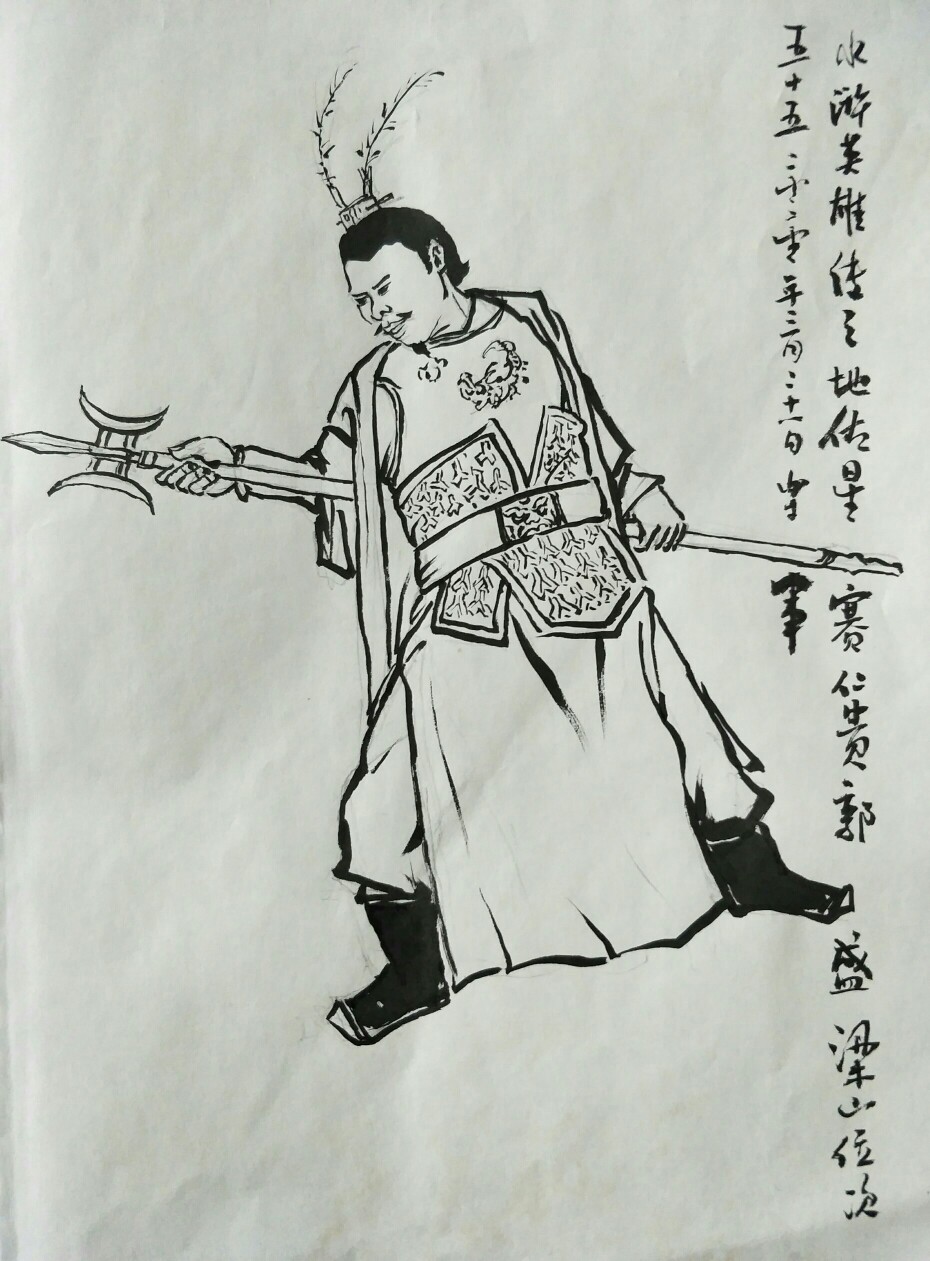 水浒英雄传之地佑星赛仁贵郭盛梁山位次
五十五二零二零年三月二十一日